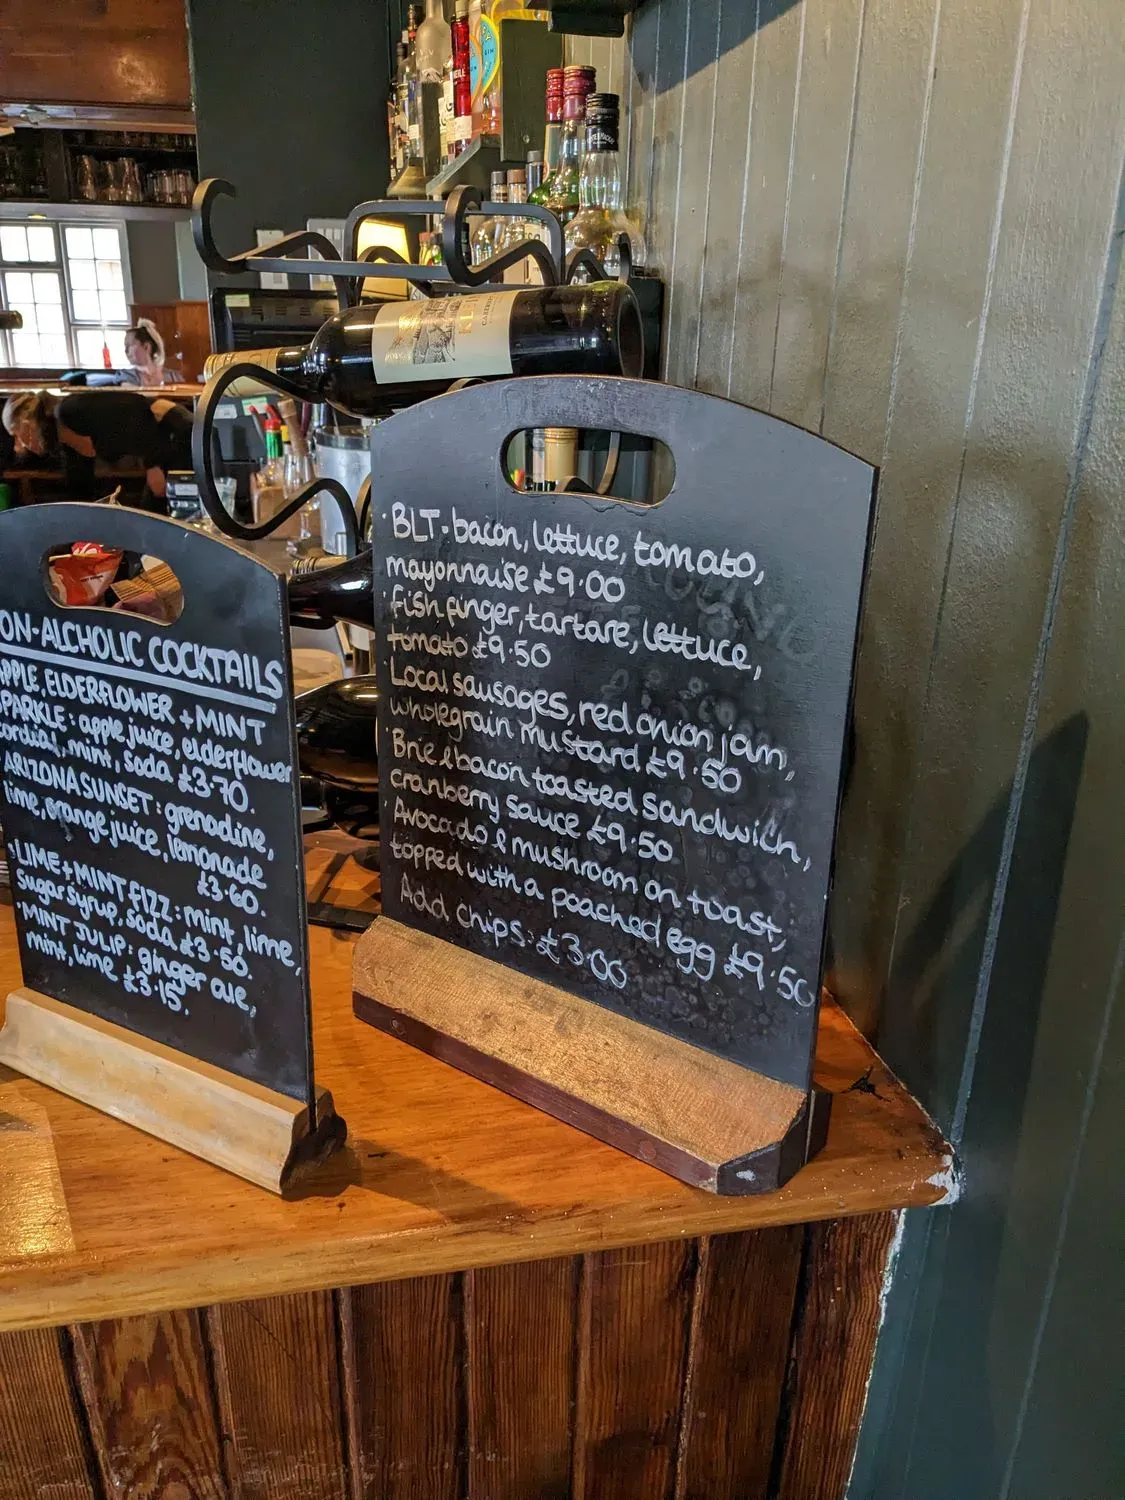 ON-ALCHOLIC COCKTAILS
APPLE, ELDERFLOWER + MINT
SPARKLE: apple juice, elderflower
cordial, mint, soda £3.70.
ARIZONA SUNSET: grenadine,
lime, orange juice, lemonade
£3.60.
LIME + MINT FIZZ: mint, lime,
Sugar syrup, soda £3.50.
MINT JULIP: ginger ale,
mint, lime £3.15.
BLT - bacon, lettuce, tomato,
mayonnaise £9.00
fish finger, tartare, lettuce,
tomato £9.50
Local sausages, red onion jam,
wholegrain mustard £9.50
Brie & bacon toasted sandwich,
cranberry sauce £9.50
Avocado & mushroom on toast,
topped with a poached egg £9.50
Add Chips: £3.00